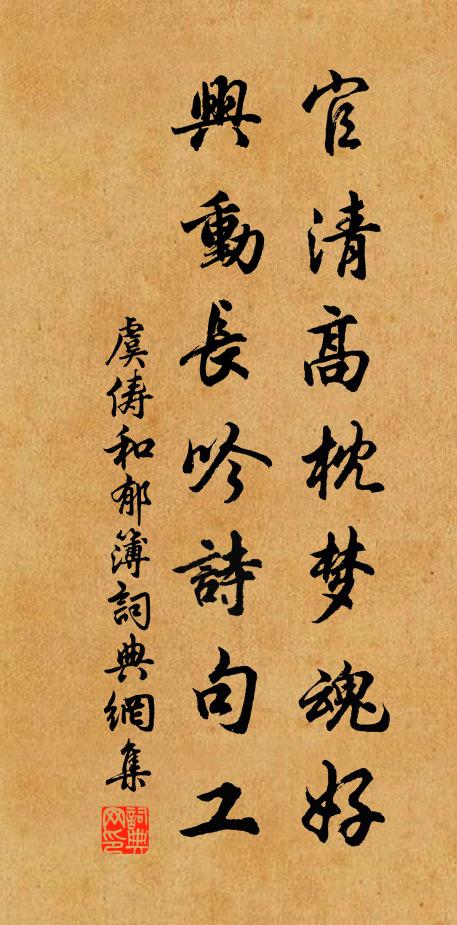 官清高枕梦魂好
興動長吟詩句工
虞俦和郁簿詞典網集
詞典网印